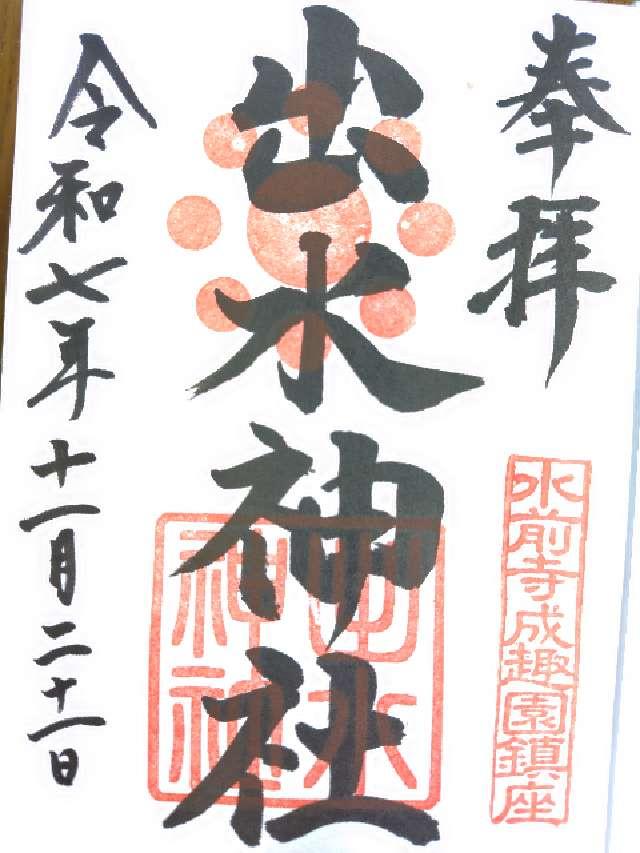 奉拝
水前寺成趣園鎮座
出水神社
令和七年十一月二十一日